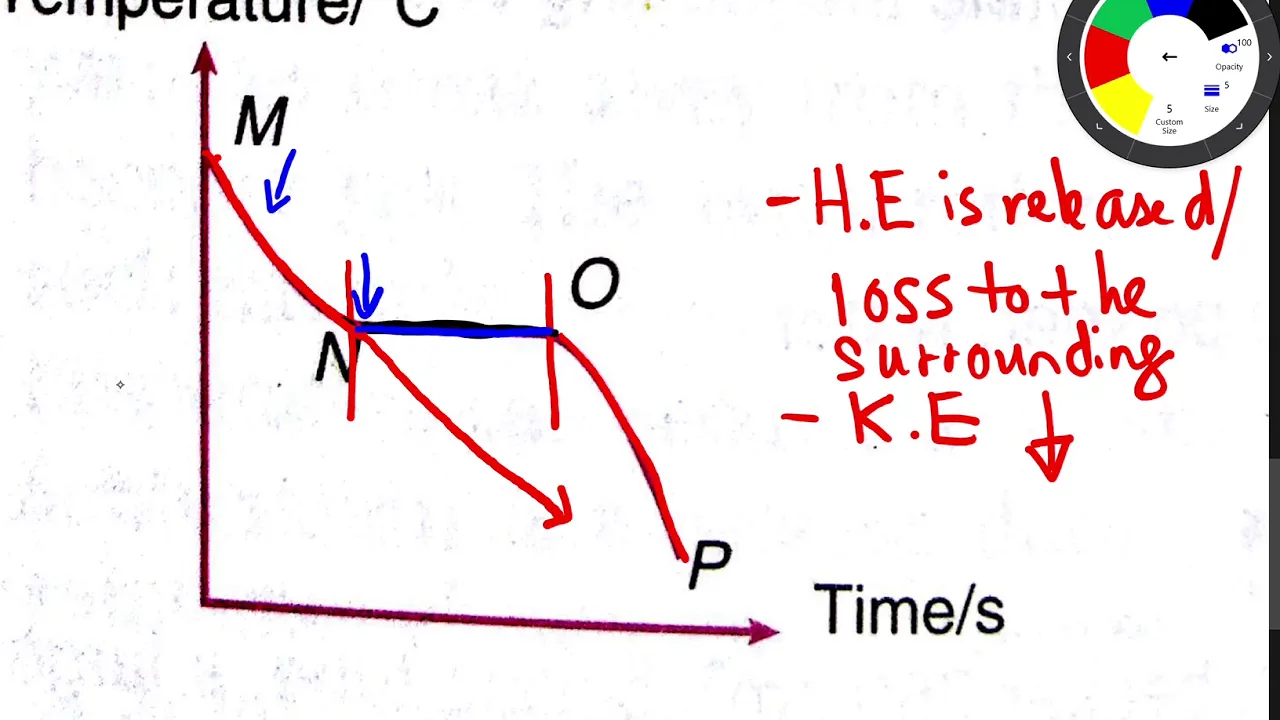 Temperature/°C
M
100
Opacity
5
Size
5
Custom
Size
- H.E is released/
loss to the
surrounding
- K.E ↓
O
N
P
Time/s